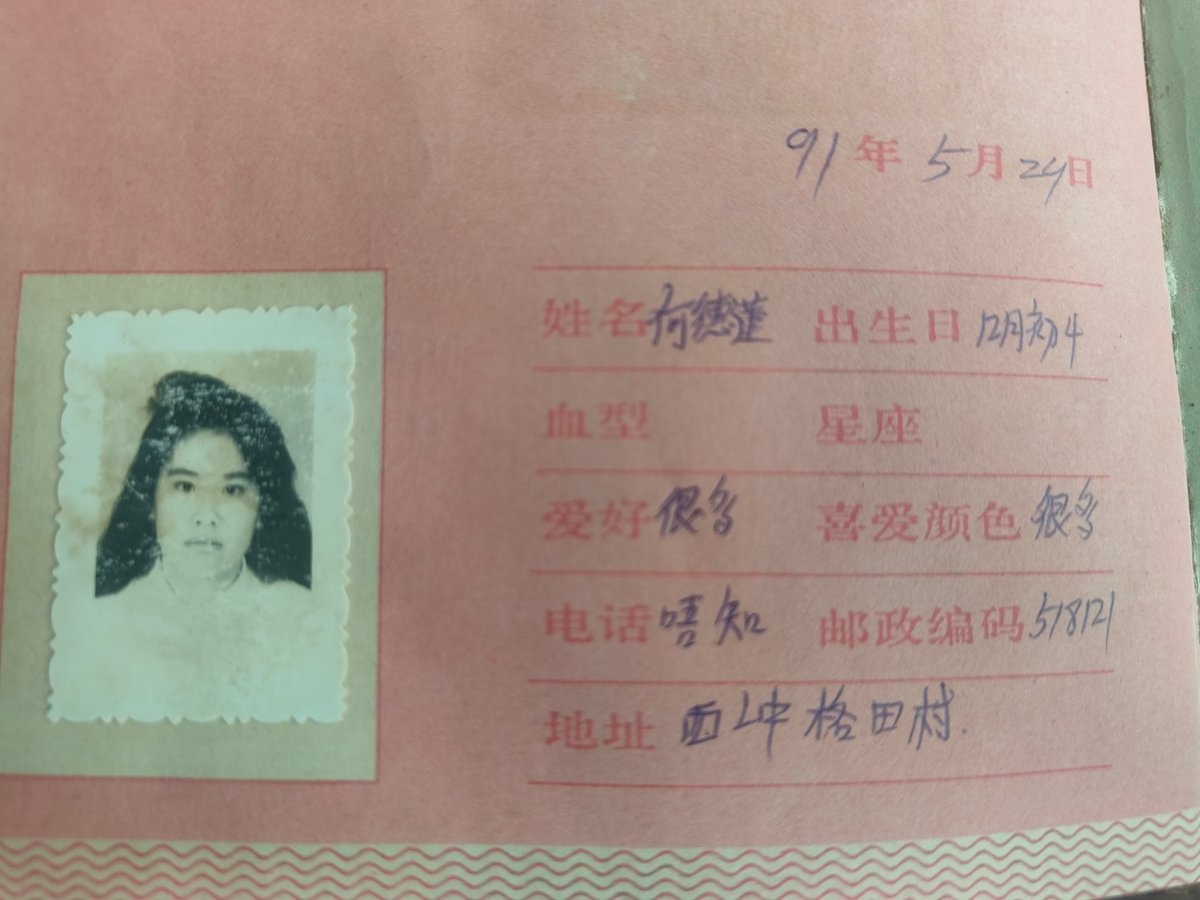 91年5月24日
姓名 何德莲 出生日 12月初4
血型 星座
爱好 很多 喜爱颜色 很多
电话 唔知 邮政编码 518121
地址 格田村.